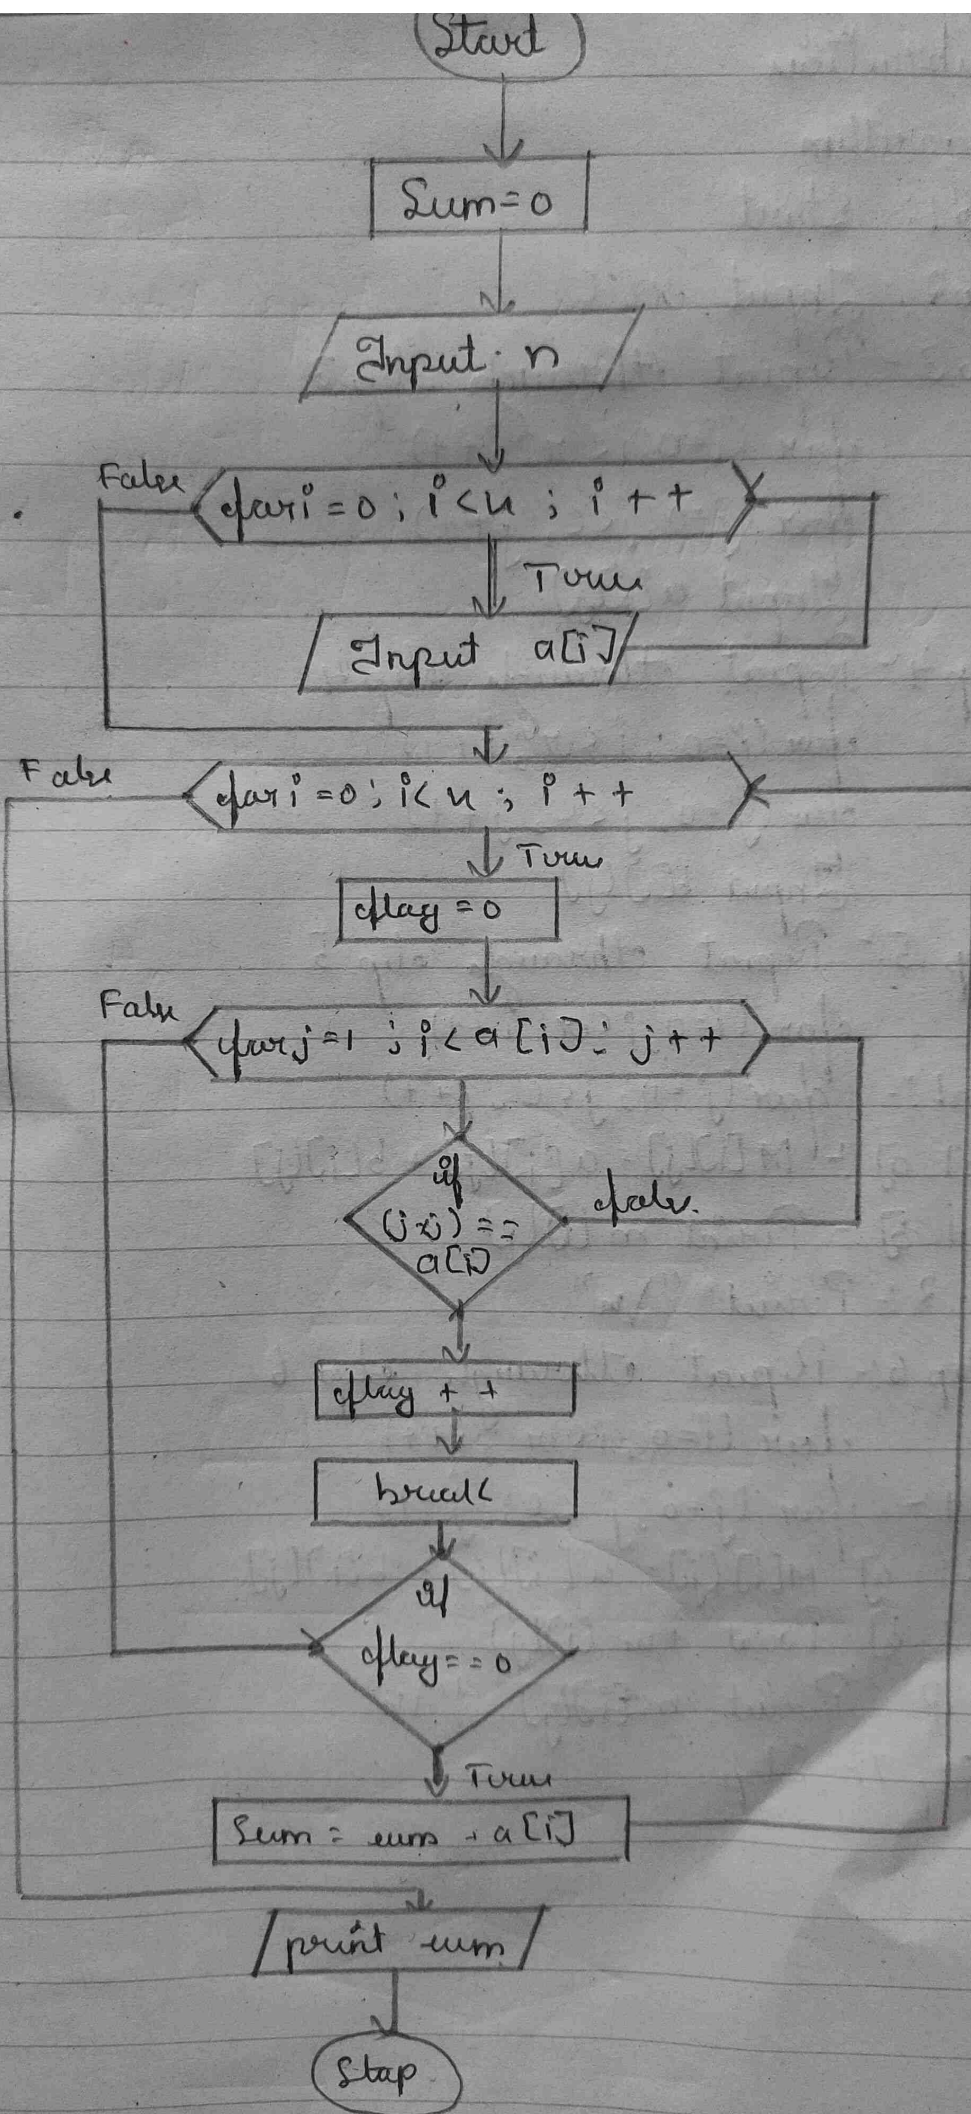 Start
Sum=0
Input n
False
for i=0; i<n ; i++
True
Input a[i]
False
for i=0; i<n ; i++
True
flag=0
False
for j=1 ; i<a[i]; j++
if
(j*j) ==
a[i]
false.
flag++
break
if
flag==0
True
Sum = sum + a[i]
print sum
Stop